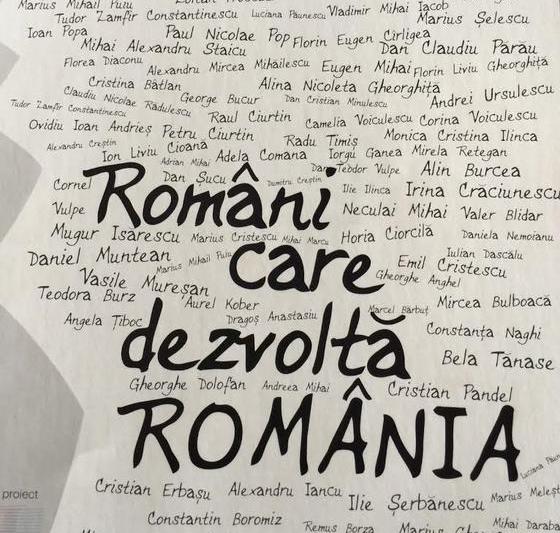 Marius Mihail Puiu
Tudor Zamfir Constantinescu Luciana Păunescu Vladimir Mihai Iacob
Marius Șelescu
Ioan Popa Paul Nicolae Pop Florin Eugen Cirligea
Mihai Alexandru Staicu Dan Claudiu Părău
Florea Diaconu Alexandru Mircea Mihăilescu Eugen Mihai Florin Liviu Gheorghiță
Cristina Bâtlan Alina Nicoleta Gheorghiță
Claudiu Nicolae Rădulescu George Bucur Dan Cristian Minulescu Andrei Ursulescu
Tudor Zamfir Constantinescu Raul Ciurtin Camelia Voiculescu Corina Voiculescu
Ovidiu Ioan Andrieș Petru Ciurtin Radu Timiș Monica Cristina Ilinca
Alexandru Creștin Ion Liviu Cioană Adela Comana Iorgu Ganea Mirela Retegan
Adrian Mihai Dan Teodor Vulpe Alin Burcea
Cornel Dan Șucu Dumitru Creștin Ilie Ilinca Irina Crăciunescu
Români
Vulpe Neculai Mihai Valer Blidar
Mugur Isarescu Marius Cristescu Mihai Marcu Horia Ciorcilă Daniela Nemoianu
Daniel Muntean Marius Mihail Puiu care Emil Cristescu Iulian Dascălu
Vasile Mureșan Gheorghe Anghel
Teodora Burz Aurel Kober Marcel Bărbuț Mircea Bulboacă
Angela Țiboc Dragoș Anastasiu Constanța Naghi
dezvoltă
Bela Tănase
Gheorghe Dolofan Andreea Mihai Cristian Pandel
ROMÂNIA
Luciana
proiect Cristian Erbașu Alexandru Iancu Ilie Șerbănescu Marius
Constantin Boromiz Remus Borza Marius Mihai Daraba